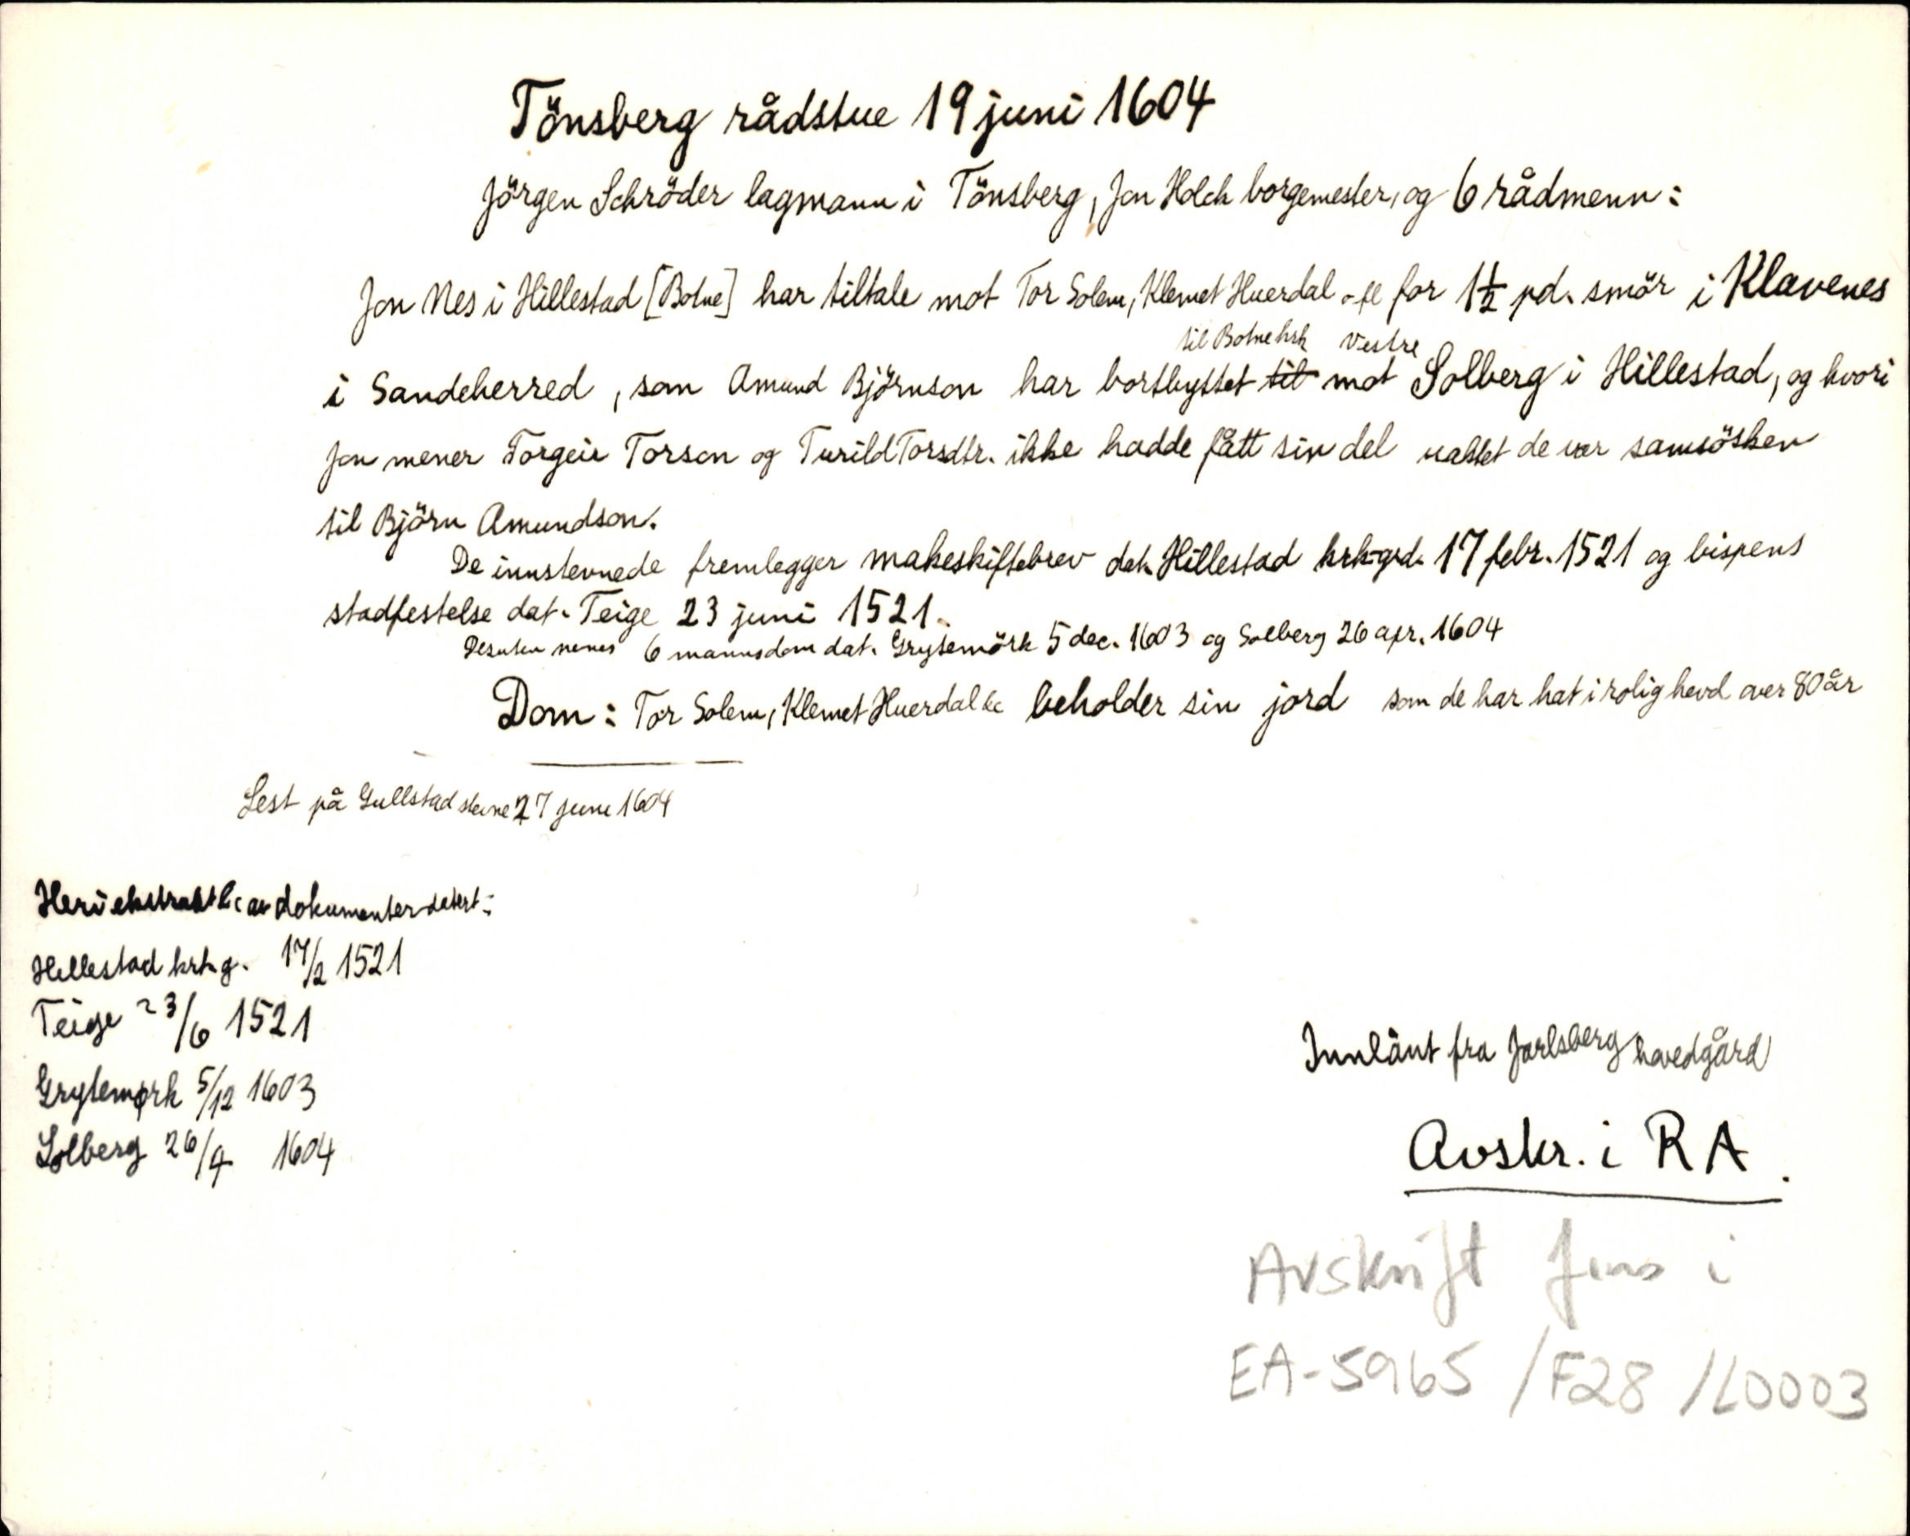 Tönsberg rådstue 19 juni 1604
Jörgen Schröder lagmann i Tönsberg, Jon Holck borgemester, og 6 rådmenn:
Jon Nes i Hillestad [Botne] har tiltale mot Tor Solem, Klemet Huerdal o fl for 1½ pd. smör i Klavenes
til Botne krk vestre
i Sandeherred, som Amund Björnson har bortbyttet til mot Solberg i Hillestad, og hvori
Jon mener Torgeir Torson og Turild Torsdtr. ikke hadde fått sin del uaktet de var samsösken
til Björn Amundson.
De innstevnede fremlegger makeskiftebrev dat. Hillestad krkgrd. 17 febr. 1521 og bispens
stadfestelse dat. Teige 23 juni 1521.
Desuten nevnes 6 mannsdom dat. Grytemörk 5 dec. 1603 og Solberg 26 apr. 1604
Dom: Tor Solem, Klemet Huerdal &c beholder sin jord som de har hat i rolig hevd over 80 år
Lest på Gullstad stevne 27 juni 1604
Heri ekstrakt &c av dokumenter datert:
Hillestad krk.g. 17/2 1521
Teige 23/6 1521
Grytemørk 5/12 1603
Solberg 26/4 1604
Innlånt fra Jarlsberg hovedgård
Avskr. i RA.
Avskrift finns i
EA-5965 /F28 /L0003